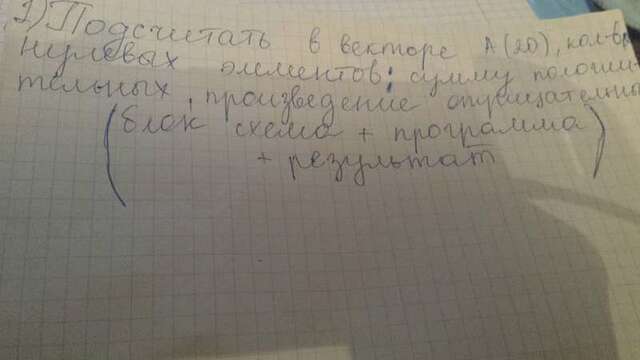 1) Подсчитать в векторе A(20), кол-во
нулевых элементов; сумму положи-
тельных, произведение отрицательны
(блок схема + программа
+ результат)